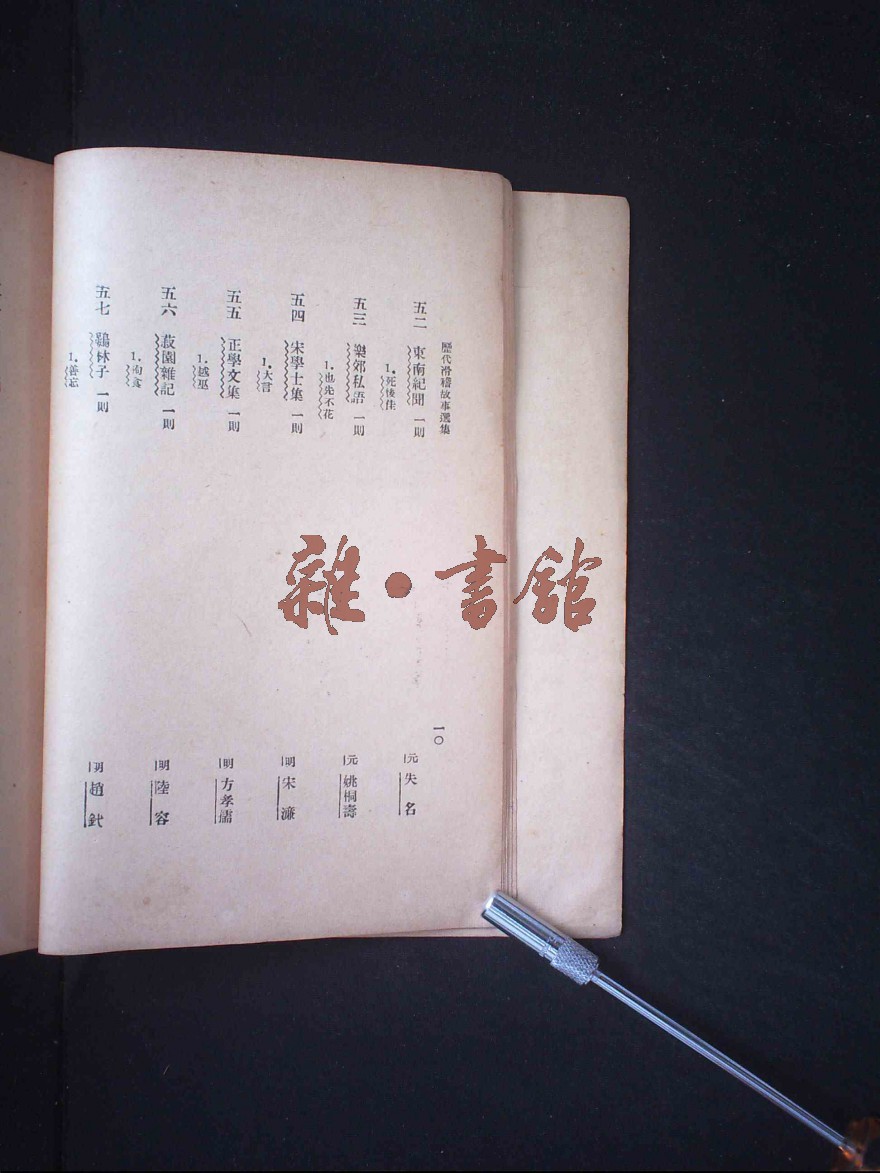 歷代滑稽故事選集
一〇
五二 東南紀聞 一則
元 失名
1.死後佳
五三 樂郊私語 一則
元 姚桐壽
1.也先不花
五四 宋學士集 一則
明 宋濂
1.大言
五五 正學文集 一則
明 方孝儒
1.越巫
五六 菽園雜記 一則
明 陸容
五七 鷄林子 一則
明 趙釴
1.善忘
雜·書館